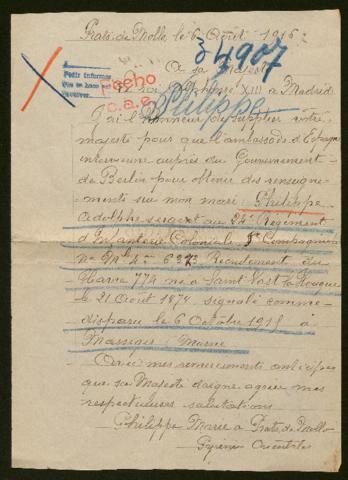 Prats de Mollo le 6 Août 1916
34907
A sa Majesté
le roi Alphonse XIII à Madrid
Pedir informes
Hecho
c.a.e.
Philippe
J'ai l'honneur de supplier votre
majesté pour que l'ambassade d'Espagne
intervienne auprès du Gouvernement
de Berlin pour obtenir des renseigne-
ments sur mon mari Philippe
Adolphe sergent au 24e Régiment
d'Infanterie Coloniale Compagnie
No 6373 Recrutement du
Havre 774 né à Saint Vast la Hougue
le 21 Août 1874 signalé comme
disparu le 6 Octobre 1915 à
Massiges Marne
Avec mes remerciements anticipés
que sa Majesté daigne agréer mes
respectueuses salutations
Philippe Marie à Prats de Mollo
Pyrénées Orientales